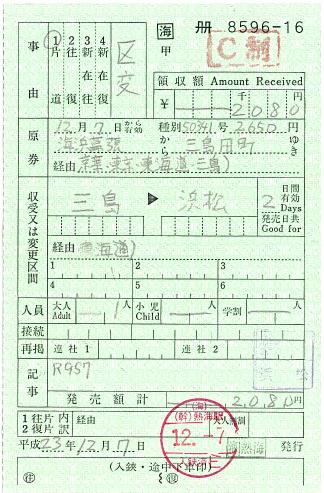 海 冊 8596-16
甲 C制
事由 1片道 2往復 3新在往 4新在往復 区変
領収額 Amount Received
¥ 千 円
2080
原券 12月7日から有効 種別 50941号 2650円
海浜幕張から 三島田町ゆき
経由 京葉・東京・東海道・三島)
収受又は変更区間
三島 ▶ 浜松
2 日間有効 Days
発売日共 Good for
経由 東海道)
1 2 3
4 5 6
人員 大人 Adult 1人 小児 Child 人 学割 人
接続
再掲 連社1 連社2
記事 R957
発売額計 2080円
1往片 2復片 内訳 経由 大人無割
平成23年12月7日 熱海 発行
(海)
(幹)熱海駅
12.-7
(入鋏・途中下車印)